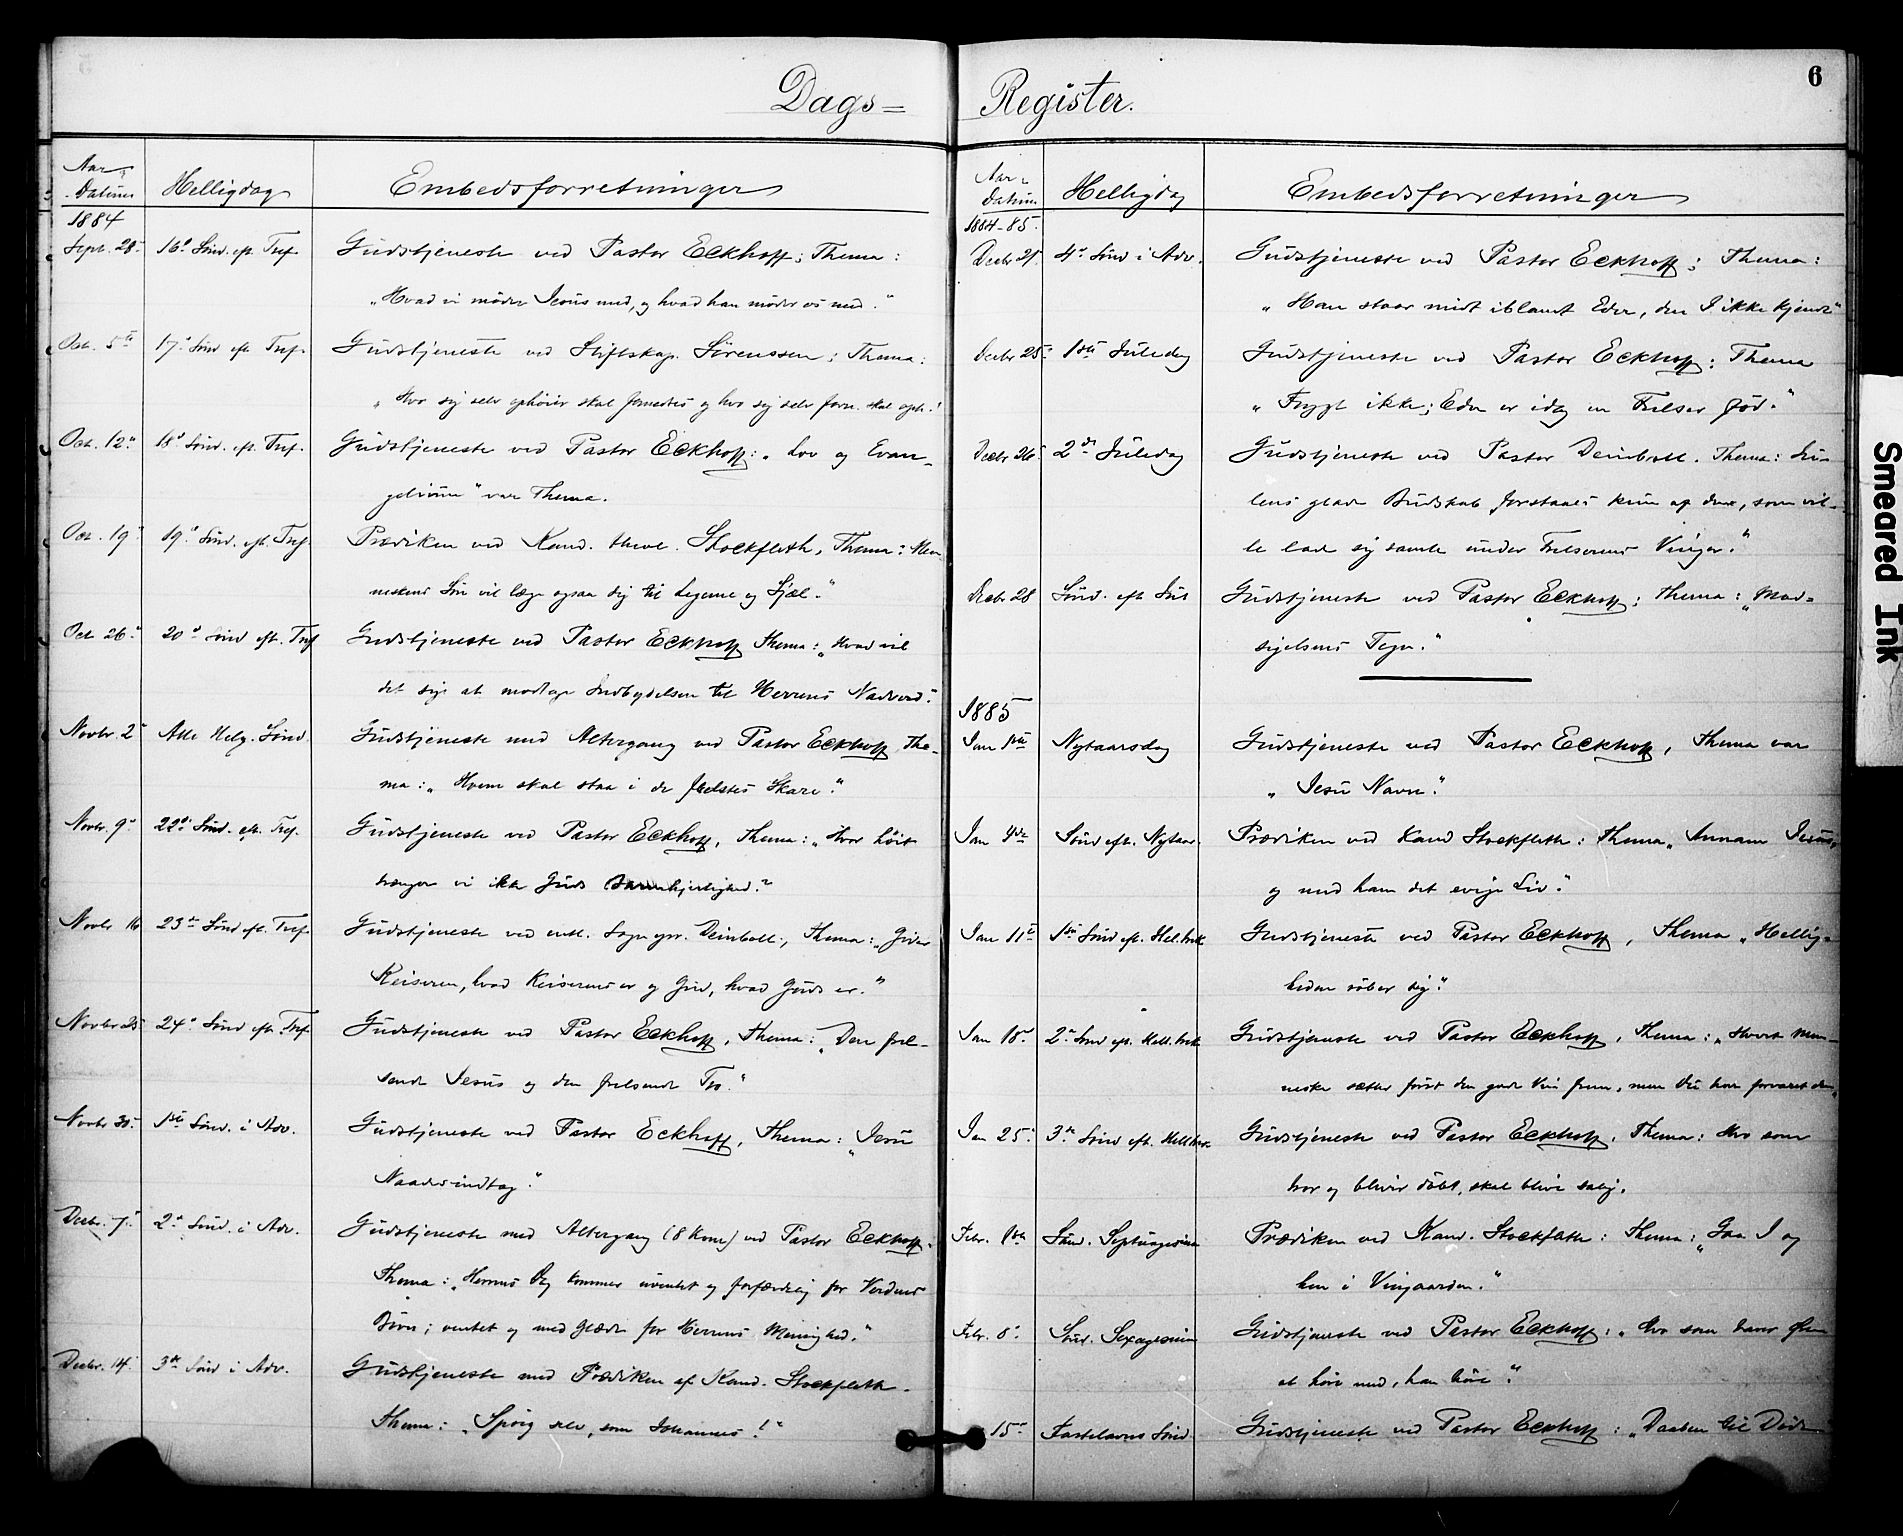 Dags=
Aar
Datum
Helligdag
Embedsforretninger
1884
Sept. 28. 16d Sönd. eft. Tref. Gudstjeneste ved Pastor Eckhoff; Thema:
"Hvad vi möder Jesus med, og hvad han möder os med."
Oct. 5te 17d Sönd eft. Tref. Gudstjeneste ved Stiftskap. Sörenssen; Thema:
"Hvo sig selv ophöier skal fornedres og hvo sig selv forn. skal oph.!
Oct. 12. 18d Sönd. eft. Tref. Gudstjeneste ved Pastor Eckhoff: "Lov og Evan-
gelium" var Thema.
Oct. 19 19d Sönd. eft. Tref. Prædiken ved Kand. theol. Stockfleth, Thema: Men-
neskens Sön vil læge ogsaa dig til Legeme og Sjæl."
Oct 26. 20d Sönd eft. Tref Gudstjeneste ved Pastor Eckhoff Thema: "Hvad vil
det sige at modtage Indbydelsen til Herrens Nadverd."
Novbr 2 Alle Helg. Sönd. Gudstjeneste med Altergang ved Pastor Eckhoff The-
ma: "Hvem skal staa i de frelstes Skare."
Novbr. 9. 22d Sönd. eft. Tref. Gudstjeneste ved Pastor Eckhoff, Thema: "Hvor höit
trænger vi ikke Guds Barmhjertighed."
Novbr 16 23de Sönd eft. Tref. Gudstjeneste ved Sogn pr. Deinboll:, Thema: "Giver
Keiseren, hvad Keiserens er og Gud, hvad Guds er."
Novbr 24d Sönd eft. Tref Gudstjeneste ved Pastor Eckhoff, Thema: "Den frel-
sende Jesus og den frelsende Tro."
Novbr 30. 1ste Sönd. i Adv. Gudstjeneste ved Pastor Eckhoff, Thema: "Jesu
Naades indtog."
Decbr. 7. 2d Sönd. i Adv. Gudstjeneste med Altergang (8 Kom) ved Pastor Eckhoff.
Thema: "Herrens Dag kommer uventet og forfærdelig for Verdens
Börn; ventet og med Glæde for Herrens Menighed."
Decbr. 14. 3de Sönd i Adv. Gudstjeneste med Prædiken af Kand. Stockfleth.
Thema: "Spörg selv, som Johannes!"
Register.
6
Aar
Datum
Helligdag
Embedsforretninger
1884-85.
Decbr 21. 4d Sönd i Adv. Gudstjeneste ved Pastor Eckhoff; Thema:
"Han staar midt iblandt Eder, den I ikke kjende"
Decbr 25. 1ste Juledag Gudstjeneste ved Pastor Eckhoff; Thema
"Frygt ikke; Eder er idag en Frelser född."
Decbr 26. 2den Juledag Gudstjeneste ved Pastor Deinboll. Thema: Ju-
lens glade Budskab forstaaes kun af dem, som vil-
le lade sig samle under Frelserens Vinger."
Decbr 28 Sönd. eft Jul Gudstjeneste ved Pastor Eckhoff; Thema: "Mod-
sigelsens Tegn."
1885
Jan 1ste Nytaarsdag Gudstjeneste ved Pastor Eckhoff, Thema var
"Jesu Navn."
Jan 4de Sönd eft. Nytaar. Prædiken ved Kand Stockfleth: Thema "Annam Jesus,
og med ham det evige Liv."
Jan 11te 1ste Sönd eft. Hel.trek. Gudstjeneste ved Pastor Eckhoff, Thema "Hellig-
heden röber sig."
Jan 18. 2d Sönd eft. Hell.trek Gudstjeneste ved Pastor Eckhoff, Thema: "Hvert Men-
neske sætter först den gode Vin frem, men Du har forvaret den"
Jan 25. 3de Sönd eft. Hell.trek. Gudstjeneste ved Pastor Eckhoff, Thema: Hvo som
tror og bliver döbt, skal blive salig.
Febr. 1ste Sönd. Septuagesima Prædiken ved Kand. Stockfleth: Thema: "Gaa I og
hen i Vingaarden."
Febr. 8. Sönd. Sexagesima Gudstjeneste ved Pastor Eckhoff: "Hvo som haver Øren
at höre med, han höre"
15. Fastelavns Sönd. Gudstjeneste ved Pastor Eckhoff: "Daaben til Döde
Smeared Ink